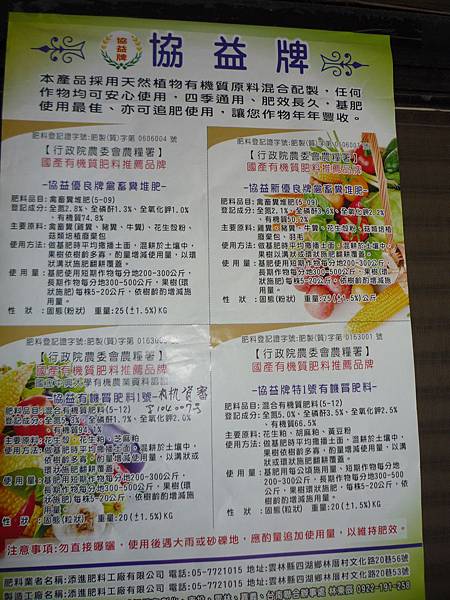 協益牌
協益牌
本產品採用天然植物有機質原料混合配製，任何
作物均可安心使用，四季通用、肥效長久，基肥
使用最佳、亦可追肥使用，讓您作物年年豐收。
肥料登記證字號:肥製(質)字第 0606004 號
【行政院農委會農糧署】
國產有機質肥料推薦品牌
-協益優良牌禽畜糞堆肥-
肥料品目:禽畜糞堆肥(5-09)
登記成分:全氮2.8%、全磷酐1.3%、全氧化鉀1.0%
、有機質74.8%
主要原料:禽畜糞(雞糞、豬糞、牛糞)、花生殼粉、
菇類培植廢棄包。
使用方法:做基肥時平均撒播土面，混耕於土壤中，
果樹依樹齡多寡，酌量增減使用，以環
狀或環狀施肥翻耕覆蓋。
使 用 量:基肥使用短期作物每分地200-300公斤，
長期作物每分地300-500公斤，果樹(環
狀施肥)每株5-20公斤，依樹齡酌增減施
用量。
性　　狀:固態(粉狀)　重量:25(±1.5%)KG
肥料登記證字號:肥製(質)字第
【行政院農委會農糧署】
國產有機質肥料推薦品牌
-協益新優良牌禽畜糞堆肥-
肥料品目:禽畜糞堆肥(5-09)
登記成分:全氮2.1%、全磷酐3.6%、全氧化鉀2.2%
、有機質50.2%
主要原料:雞糞、豬糞、牛糞、花生殼粉、菇類培植
廢棄包、羽毛
使用方法:做基肥時平均撒播土面，混耕於土壤中，
果樹依樹齡多寡，酌量增減使用，
以溝狀或環狀施肥翻耕覆蓋。
使 用 量:基肥使用短期作物每分地200-300公斤，
長期作物每分地300-500公斤，果樹(環
狀施肥)每株5-20公斤，依樹齡酌增減
施用量。
性　　狀:固態(粉狀)　重量:25(±1.5%)公斤
肥料登記證字號:肥製(質)字第 0163003
【行政院農委會農糧署】
國產有機質肥料推薦品牌
國立中興大學有機農業資料認證
-協益有機質肥料1號-
肥料品目:混合有機質肥料(5-12)
登記成分:全氮5.3%、全磷酐1.7%、全氧化鉀2.0%
、有機質94.1%
主要原料:花生殼、花生粕、芝麻粕
使用方法:做基肥時平均撒播土面，混耕於土壤中，
果樹依樹齡多寡，酌量增減使用，以溝狀
或環狀施肥翻耕覆蓋。
使 用 量:基肥使用短期作物每分地200-300公斤，
長期作物每分地300-500公斤，果樹(環
狀施肥)每株5-20公斤，依樹齡酌增減施
用量。
性　　狀:固態(粒狀)　重量:20(±1.5%)KG
肥料登記證字號:肥製(質)字第 0163001 號
【行政院農委會農糧署】
國產有機質肥料推薦品牌
-協益牌特1號有機質肥料-
肥料品目:混合有機質肥料(5-12)
登記成分:全氮5.0%、全磷酐3.5%、全氧化鉀2.5%
、有機質66.5%
主要原料:花生粕、胡麻粕、黃豆粉
使用方法:做基肥時平均撒播土面，混耕於土壤中，
果樹依樹齡多寡，酌量增減使用，
以溝狀或環狀施肥翻耕覆蓋。
使 用 量:基肥用每公頃施用量、短期作物每分地
200-300公斤，長期作物每分地300-500
公斤，果樹(環狀施肥)每株5-20公斤，依
樹齡酌增減施用量。
性　　狀:固態(粒狀)　重量:20(±1.5%)KG
注意事項:勿直接曝曬，使用後遇大雨或砂礫地，應酌量追加使用量，以維持肥效。
肥料業者名稱:添進肥料工廠有限公司 電話:05-7721015 地址:雲林縣四湖鄉林厝村文化路20巷56號
製造工廠名稱:添進肥料工廠有限公司 電話:05-7721015 地址:雲林縣四湖鄉林厝村文化路20巷53號
0922-191-258